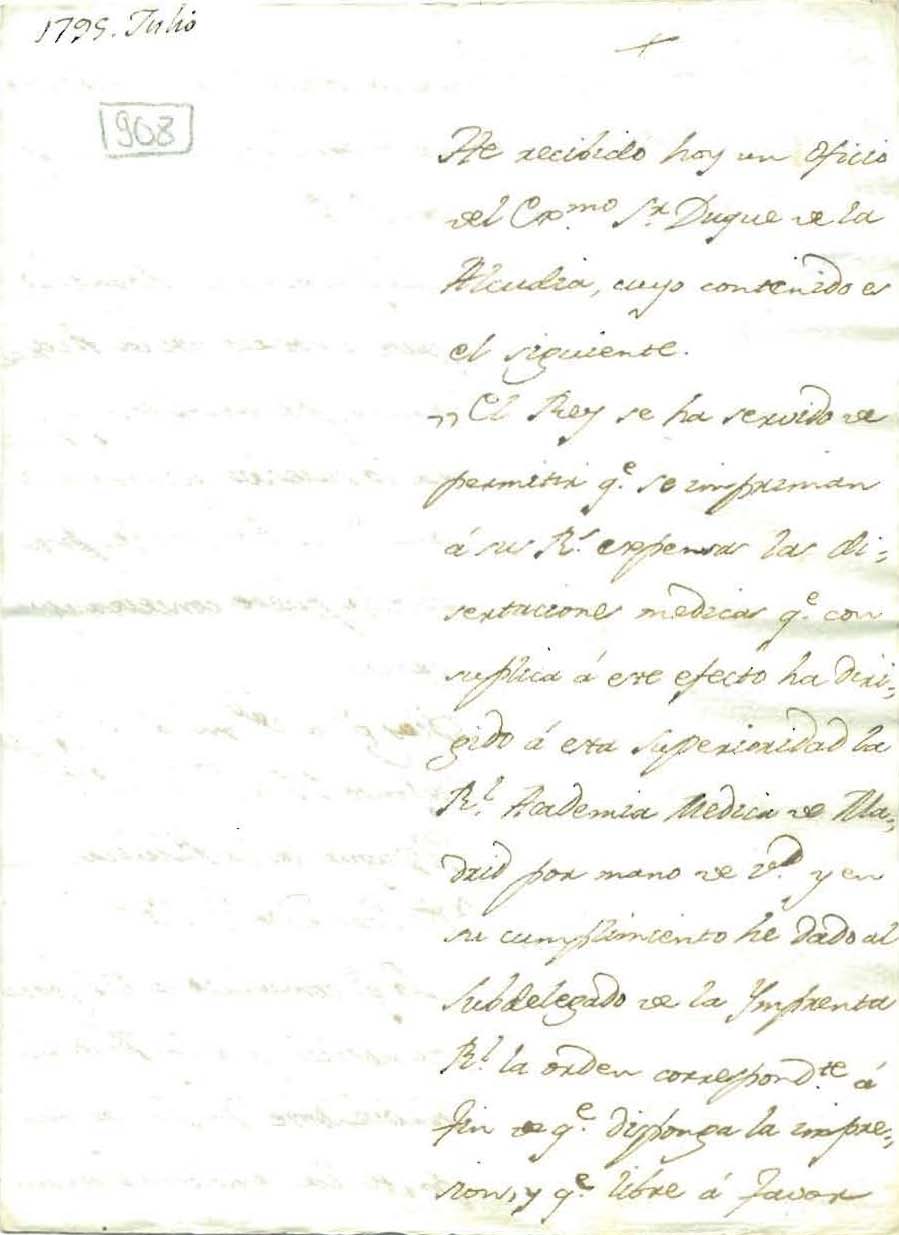 1795. Julio
908
He recibido hoy un oficio
del Exmo. Sr. Duque de la
Alcudia, cuyo contenido es
el siguiente.
,, El Rey se ha servido de
permitir qe. se impriman
á sus Rs. expensas las di-
sertaciones medicas qe. con
suplica á este efecto ha diri-
gido á esta superioridad la
Rl. Academia Medica de Ma-
drid por mano de Vd. y en
su cumplimiento he dado al
Subdelegado de la Ymprenta
Rl. la orden correspondte. á
fin de qe. disponga la impre-
sion, y qe. libre á favor